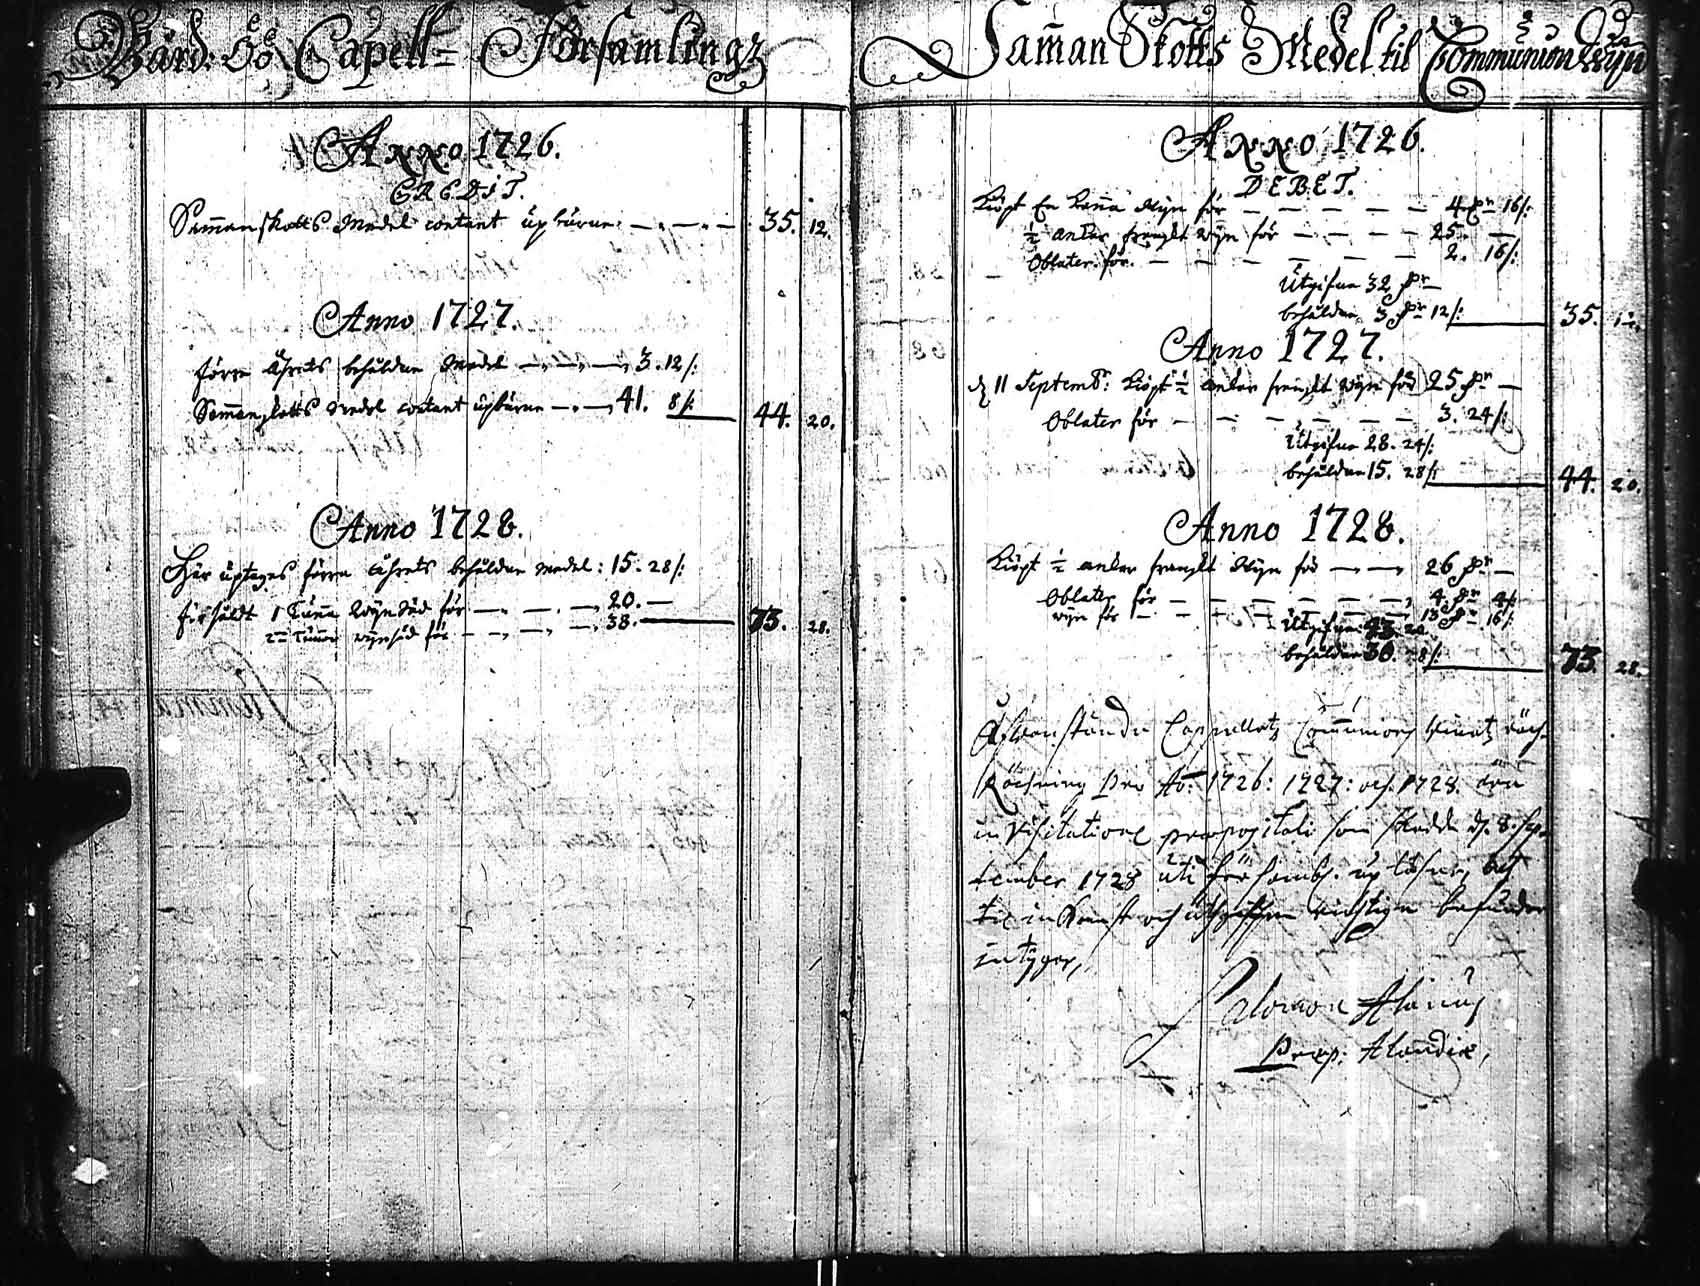 Wård: Öö Capell= Församlings
Anno 1726.
CREDIT.
Sam̄anskotts Medel contant upburne 35. 12.
Anno 1727.
förra åhrets behåldne Medel 3. 12/:
Sam̄anskotts Medel contant upburne 41. 8/: 44. 20.
Anno 1728.
Här uptages förra åhrets behåldne medel: 15. 28/:
försåldt 1 Tun̄a Wijn Säd för 20. —
2ne Tun̄or wijnsäd för 38. 73. 28.
Sam̄an Skotts Medel til Communion Wijn
Anno 1726.
DEBET.
Kiöpt En Kan̄a Wijn för 4 Dr 16/:
½ anker franskt Wijn för 25. —
Oblater för 2. 16/:
Utgifne 32 Dr —
behåldne 3 Dr 12/: 35. 12.
Anno 1727.
d 11 Septembr: Kiöpt ½ anker franskt Wijn för 25 Dr —
Oblater för 3. 24/:
Utgifne 28. 24/:
behåldne 15. 28/: 44. 20.
Anno 1728.
Kiöpt ½ anker franskt Wijn för 26 Dr —
Oblater för 4 Dr 4/:
wijn för 13 Dr 16/:
Utgifne 43. 20.
behåldne 30. 8/: 73. 28.
Ofvanstående Cappellets Com̄unions
Räckning Pro Ao: 1726: 1727: och 1728. äro
in Visitatione præpositali som skedde d. 8. Sep-
tember 1728 uti församb. up läsne,
til inkomst och utgifften richtige befundne
intyger,
Salomon Alanus
Præp: Alandiæ,